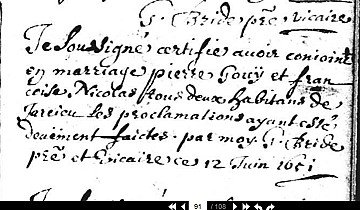 G. Bride pr̃e vicaire
Je soussigné certifie avoir conjoinct
en marriage pierre Gouÿ et fran
coise Nicolas tous deux habitans de
les proclamations ayant esté
deuëment faictes. par moy G. Bride
pr̃e et vicaire ce 12 Juin 1651
91 / 108